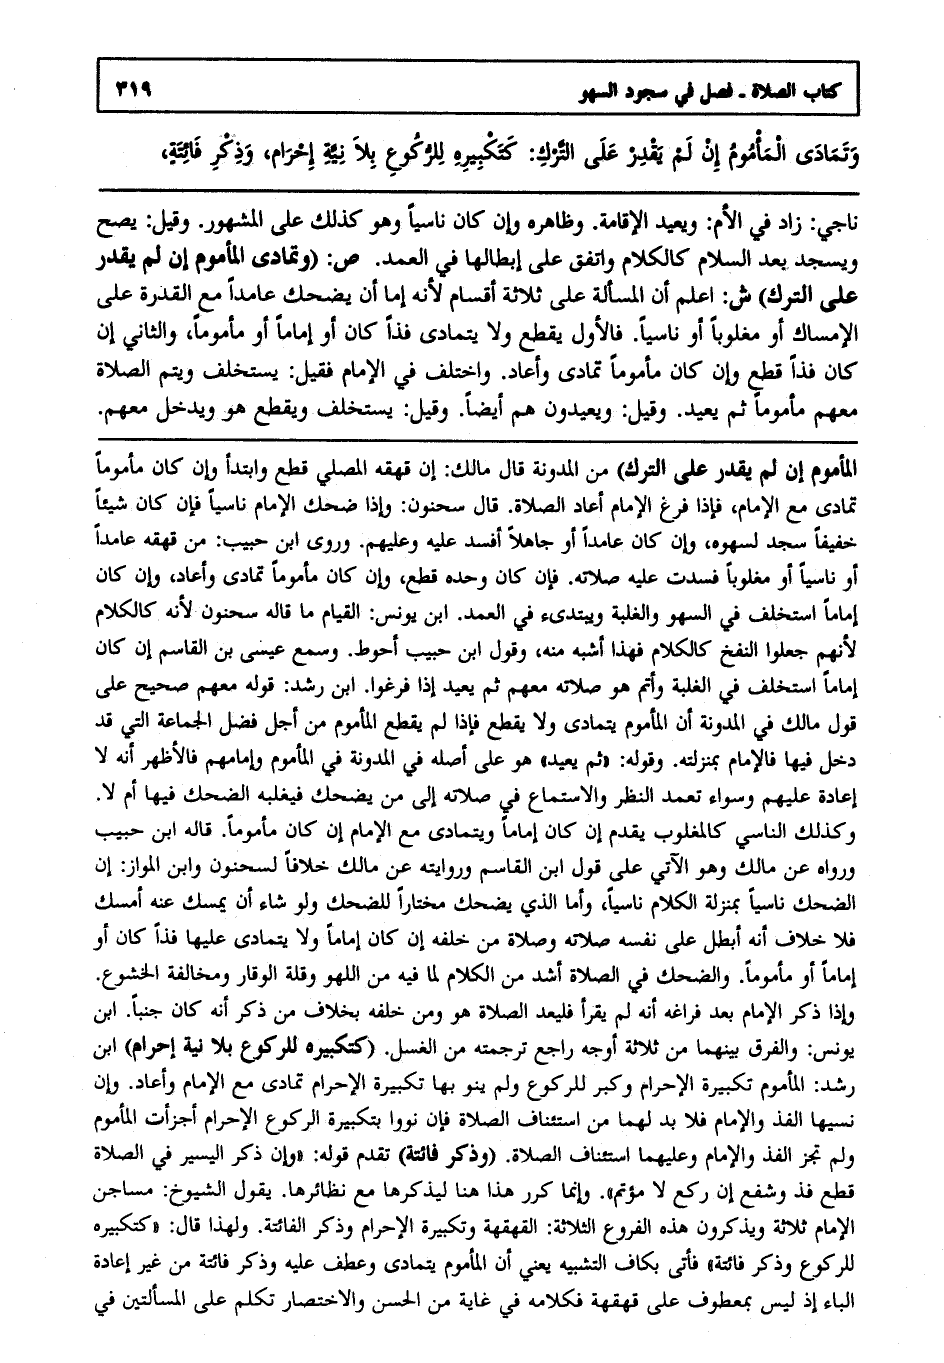 كتاب الصلاة ـ فصل في سجود السهو ٣١٩
وَتَمَادَى الْمَأْمُومُ إِنْ لَمْ يَقْدِرْ عَلَى التَّرْكِ: كَتَكْبِيرِهِ لِلرُّكُوعِ بِلاَ نِيَّةِ إِحْرَامٍ، وَذِكْرِ فَائِتَةٍ،
ناجي: زاد في الأم: ويعيد الإقامة. وظاهره وإن كان ناسياً وهو كذلك على المشهور. وقيل: يصح
ويسجد بعد السلام كالكلام واتفق على إبطالها في العمد. ص: (وتمادى المأموم إن لم يقدر
على الترك) ش: اعلم أن المسألة على ثلاثة أقسام لأنه إما أن يضحك عامداً مع القدرة على
الإمساك أو مغلوباً أو ناسياً. فالأول يقطع ولا يتمادى فذاً كان أو إماماً أو مأموماً، والثاني إن
كان فذاً قطع وإن كان مأموماً تمادى وأعاد. واختلف في الإمام فقيل: يستخلف ويتم الصلاة
معهم مأموماً ثم يعيد. وقيل: ويعيدون هم أيضاً. وقيل: يستخلف ويقطع هو ويدخل معهم.
المأموم إن لم يقدر على الترك) من المدونة قال مالك: إن قهقه المصلي قطع وابتدأ وإن كان مأموماً
تمادى مع الإمام، فإذا فرغ الإمام أعاد الصلاة. قال سحنون: وإذا ضحك الإمام ناسياً فإن كان شيئاً
خفيفاً سجد لسهوه، وإن كان عامداً أو جاهلاً أفسد عليه وعليهم. وروى ابن حبيب: من قهقه عامداً
أو ناسياً أو مغلوباً فسدت عليه صلاته. فإن كان وحده قطع، وإن كان مأموماً تمادى وأعاد، وإن كان
إماماً استخلف في السهو والغلبة ويبتدىء في العمد. ابن يونس: القيام ما قاله سحنون لأنه كالكلام
لأنهم جعلوا النفخ كالكلام فهذا أشبه منه، وقول ابن حبيب أحوط. وسمع عيسى بن القاسم إن كان
إماماً استخلف في الغلبة وأتم هو صلاته معهم ثم يعيد إذا فرغوا. ابن رشد: قوله معهم صحيح على
قول مالك في المدونة أن المأموم يتمادى ولا يقطع فإذا لم يقطع المأموم من أجل فضل الجماعة التي قد
دخل فيها فالإمام بمنزلته. وقوله: «ثم يعيد» هو على أصله في المدونة في المأموم وإمامهم فالأظهر أنه لا
إعادة عليهم وسواء تعمد النظر والاستماع في صلاته إلى من يضحك فيغلبه الضحك فيها أم لا.
وكذلك الناسي كالمغلوب يقدم إن كان إماماً ويتمادى مع الإمام إن كان مأموماً. قاله ابن حبيب
ورواه عن مالك وهو الآتي على قول ابن القاسم وروايته عن مالك خلافاً لسحنون وابن المواز: إن
الضحك ناسياً بمنزلة الكلام ناسياً، وأما الذي يضحك مختاراً للضحك ولو شاء أن يمسك عنه أمسك
فلا خلاف أنه أبطل على نفسه صلاته وصلاة من خلفه إن كان إماماً ولا يتمادى عليها فذاً كان أو
إماماً أو مأموماً. والضحك في الصلاة أشد من الكلام لما فيه من اللهو وقلة الوقار ومخالفة الخشوع.
وإذا ذكر الإمام بعد فراغه أنه لم يقرأ فليعد الصلاة هو ومن خلفه بخلاف من ذكر أنه كان جنباً. ابن
يونس: والفرق بينهما من ثلاثة أوجه راجع ترجمته من الغسل. (كتكبيره للركوع بلا نية إحرام) ابن
رشد: المأموم تكبيرة الإحرام وكبر للركوع ولم ينو بها تكبيرة الإحرام تمادى مع الإمام وأعاد. وإن
نسيها الفذ والإمام فلا بد لهما من استئناف الصلاة فإن نووا بتكبيرة الركوع الإحرام أجزأت المأموم
ولم تجز الفذ والإمام وعليهما استئناف الصلاة. (وذكر فائتة) تقدم قوله: «وإن ذكر اليسير في الصلاة
قطع فذ وشفع إن ركع لا مؤتم». وإنما كرر هذا هنا ليذكرها مع نظائرها. يقول الشيوخ: مساجن
الإمام ثلاثة ويذكرون هذه الفروع الثلاثة: القهقهة وتكبيرة الإحرام وذكر الفائتة. ولهذا قال: «كتكبيره
للركوع وذكر فائتة» فأتى بكاف التشبيه يعني أن المأموم يتمادى وعطف عليه وذكر فائتة من غير إعادة
الباء إذ ليس بمعطوف على قهقهة فكلامه في غاية من الحسن والاختصار تكلم على المسألتين في